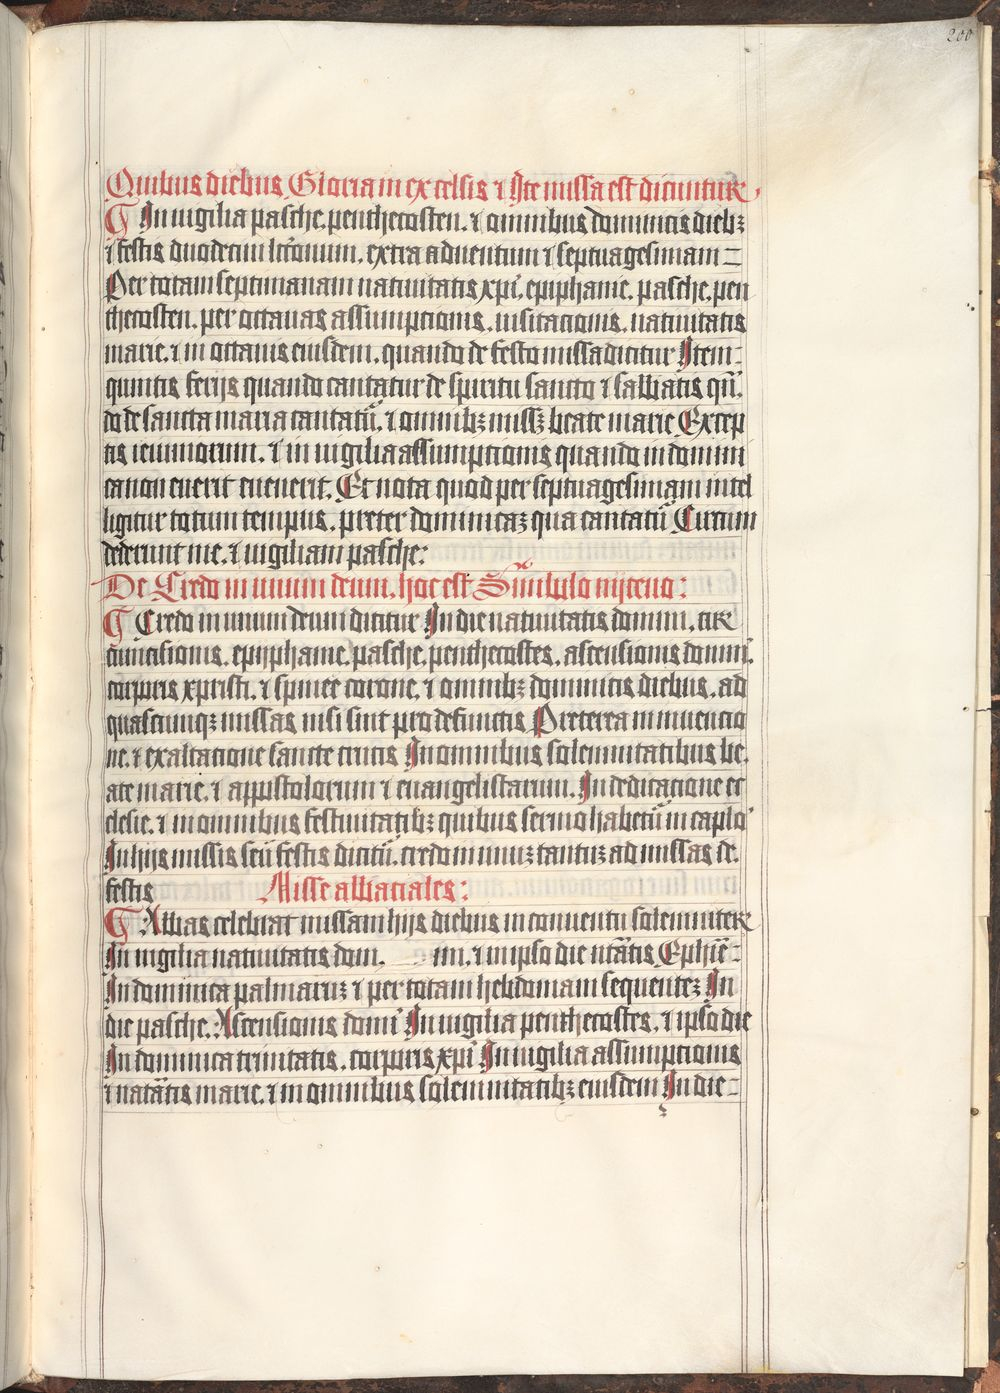 200
Quibus diebus Gloria in excelsis ⁊ Ite missa est dicuntur
In vigilia pasche, penthecosten, ⁊ omnibus dominicis diebꝫ
⁊ festis duodecim lc̄onum, extra aduentum ⁊ septuagesimam =
Per totam septimanam natiuitatis xp̄i, epiphanie, pasche, pen
thecosten, per octauas assumpcionis, visitacionis, natiuitatis
marie, ⁊ in octauis eiusdem, quando de festo missa dicitur Item:
quintis ferijs quando cantatur de spiritu sancto ⁊ sabbatis qn̄,
do de sancta maria cantatᷣ, ⁊ omnibꝫ missꝫ beate marie Excep
tis ieiuniorum, ⁊ in vigilia assumpcionis quando in domini
ca non euerit euenerit. Et nota quod per septuagesimam intel
ligitur totum tempus, preter dominicaꝫ qua cantatᷣ Circum
dederunt me, ⁊ vigiliam pasche:
De Credo in unum deum, hoc est Sīmbulo nijceno:
Credo in unum deum dicitur In die natiuitatis domini, cir
cumcisionis, epyphanie, pasche, penthecostes, ascensionis domini,
corporis xpristi, ⁊ spinee corone, ⁊ omnibꝫ dominicis diebus, ad
quascumqꝫ missas nisi sint pro defunctis Preterea in inuencio
ne, ⁊ exaltacione sancte crucis In omnibus solemnitatibus be,
ate marie, ⁊ appostolorum ⁊ euangelistarum, In dedicacione ec
clesie, ⁊ in omnibus festiuitatibꝫ quibus sermo habetᷣ in cap̄lo
In hijs missis seu festis dicitᷣ, credo in unuꝫ tantuꝫ ad missas de
festis Misse abbaciales:
Abbas celebrat missam hijs diebus in conuentu solemniter
In vigilia natiuitatis dom, ni, ⁊ in ipso die n̄tatis Ephīe:
In dominica palmaruꝫ ⁊ per totam hebdomam sequenteꝫ In
die pasche, Ascensionis domī In vigilia penthecostes, ⁊ ipso die
In dominica trinitatis, corporis xp̄i In vigilia assumpcionis
⁊ natātis marie, ⁊ in omnibus solemnitatibꝫ eiusdem In die =